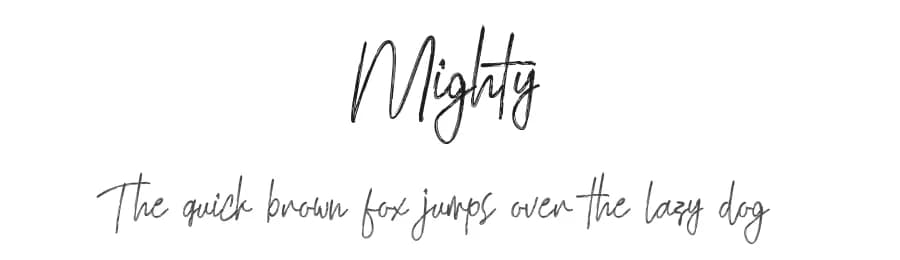 Mighty
The quick brown fox jumps over the lazy dog